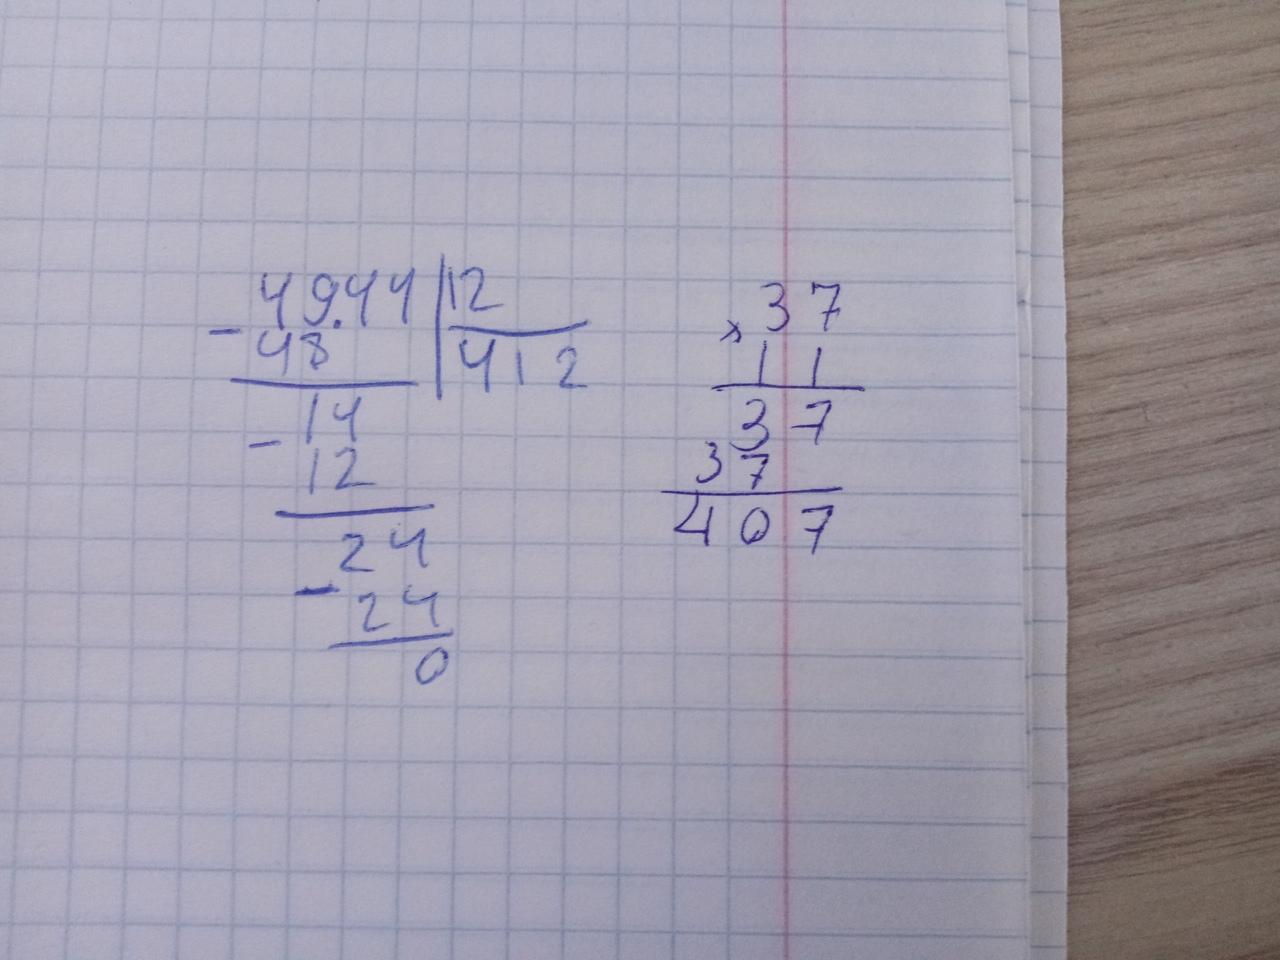 49.44 | 12
- 48 | 412
14
- 12
24
- 24
0
37
x
11
37
37
407